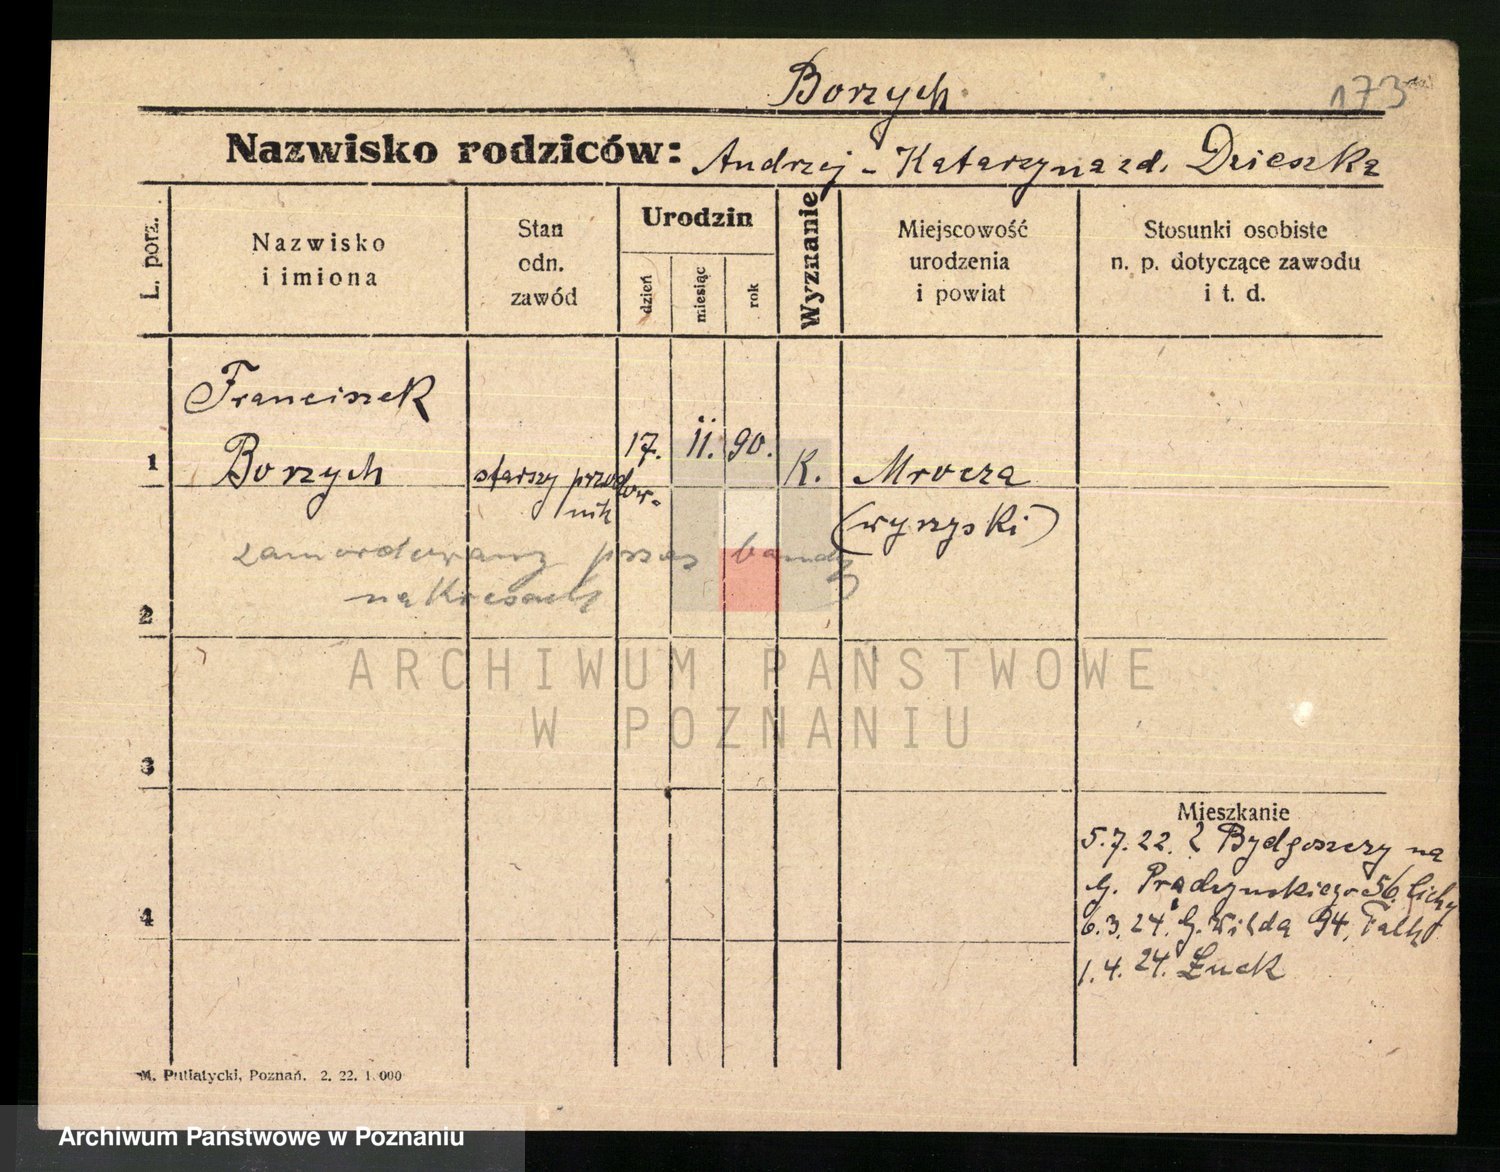 Borzych
173
Nazwisko rodziców: Andrzej - Katarzyna zd. Dzieszka
L. porz.
Nazwisko
i imiona
Stan
odn.
zawód
Urodzin
dzień
miesiąc
rok
Wyznanie
Miejscowość
urodzenia
i powiat
Stosunki osobiste
n. p. dotyczące zawodu
i t. d.
Franciszek
1 Borzych starszy przodow- 17. 11. 90. K. Mrocza
nik (wyrzyski)
zamordowany przez bandę
na Kresach
2
ARCHIWUM PAŃSTWOWE
W POZNANIU
3
Mieszkanie
5.7.22. z Bydgoszczy na
G. Prądzyńskiego 56. Cichy
4 6.3.24. G. Wilda 94, Falk
1.4.24. Łuck
M. Putiatycki, Poznań. 2. 22. 1.000
Archiwum Państwowe w Poznaniu